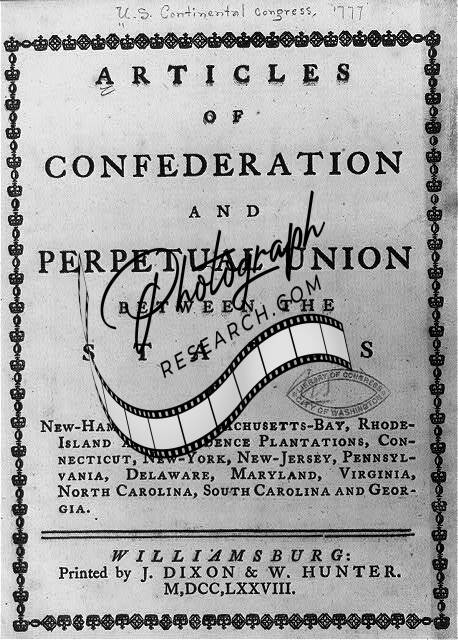 U.S. Continental Congress, 1777
ARTICLES
OF
CONFEDERATION
AND
PERPETUAL UNION
BETWEEN THE
STATES
Photograph
RESEARCH.COM
LIBRARY OF CONGRESS
CITY OF WASHINGTON
NEW-HAM ACHUSETTS-BAY, RHODE-
ISLAND A DENCE PLANTATIONS, CON-
NECTICUT, NEW-YORK, NEW-JERSEY, PENNSYL-
VANIA, DELAWARE, MARYLAND, VIRGINIA,
NORTH CAROLINA, SOUTH CAROLINA AND GEOR-
GIA.
WILLIAMSBURG:
Printed by J. DIXON & W. HUNTER.
M,DCC,LXXVIII.